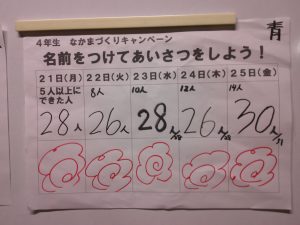 青
4年生 なかまづくりキャンペーン
名前をつけてあいさつをしよう!
21日(月) 22日(火) 23日(水) 24日(木) 25日(金)
5人以上に
できた人
8人 10人 12人 14人
28人 26人 28人 26人 30人